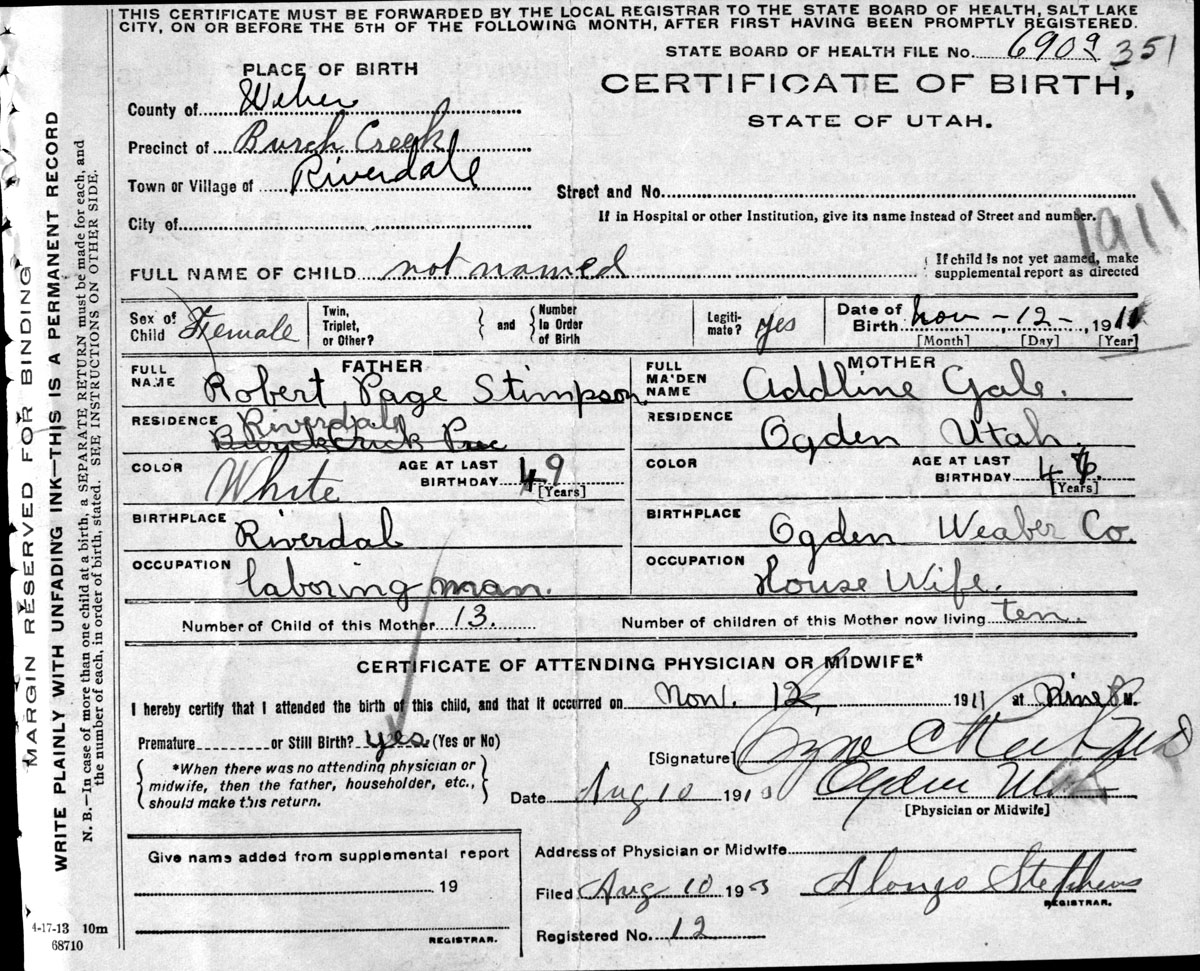 THIS CERTIFICATE MUST BE FORWARDED BY THE LOCAL REGISTRAR TO THE STATE BOARD OF HEALTH, SALT LAKE
CITY, ON OR BEFORE THE 5TH OF THE FOLLOWING MONTH, AFTER FIRST HAVING BEEN PROMPTLY REGISTERED.
STATE BOARD OF HEALTH FILE No. 6909 351
PLACE OF BIRTH
CERTIFICATE OF BIRTH,
STATE OF UTAH.
County of Weber
Precinct of Burch Creek
Town or Village of Riverdale
Street and No.
If in Hospital or other Institution, give its name instead of Street and number.
1911
City of
FULL NAME OF CHILD not named
If child is not yet named, make
supplemental report as directed
Sex of Child Female
Twin, Triplet, or Other?
and
Number in Order of Birth
Legiti-mate? yes
Date of Birth Nov - 12 - 1911
[Month] [Day] [Year]
FATHER
FULL NAME Robert Page Stimpson
MOTHER
FULL MAIDEN NAME Addline Gale.
RESIDENCE Riverdale
RESIDENCE Ogden Utah.
COLOR White
AGE AT LAST BIRTHDAY 49
[Years]
COLOR
AGE AT LAST BIRTHDAY
[Years]
BIRTHPLACE Riverdal
BIRTHPLACE Ogden Weaber Co.
OCCUPATION laboring man.
OCCUPATION House Wife.
Number of Child of this Mother 13.
Number of children of this Mother now living ten.
CERTIFICATE OF ATTENDING PHYSICIAN OR MIDWIFE*
I hereby certify that I attended the birth of this child, and that it occurred on Nov. 12, 1911 at Nine P M.
Premature or Still Birth? yes. (Yes or No)
[Signature]
*When there was no attending physician or
midwife, then the father, householder, etc.,
should make this return.
Ogden Utah
Date Aug 10 191
[Physician or Midwife]
Give name added from supplemental report
19
REGISTRAR.
Address of Physician or Midwife
Filed Aug 10 19 Alonzo Stephens
REGISTRAR.
Registered No. 12
4-17-13 10m
68710
MARGIN RESERVED FOR BINDING
WRITE PLAINLY WITH UNFADING INK—THIS IS A PERMANENT RECORD
N. B.—In case of more than one child at a birth, a SEPARATE RETURN must be made for each, and
the number of each, in order of birth, stated. SEE INSTRUCTIONS ON OTHER SIDE.